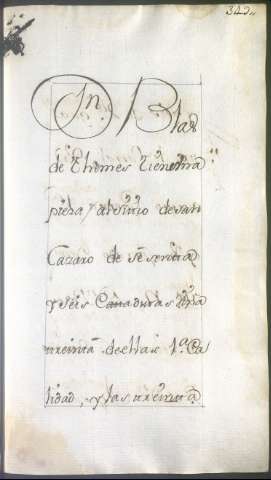 343
Dn. Blas
de Thomes tiene una
pieza y al sitio de san
Lazaro de sesenta
y seis Cañaduras, una
treinta dellas 1ª. Ca
lidad, y las treinta